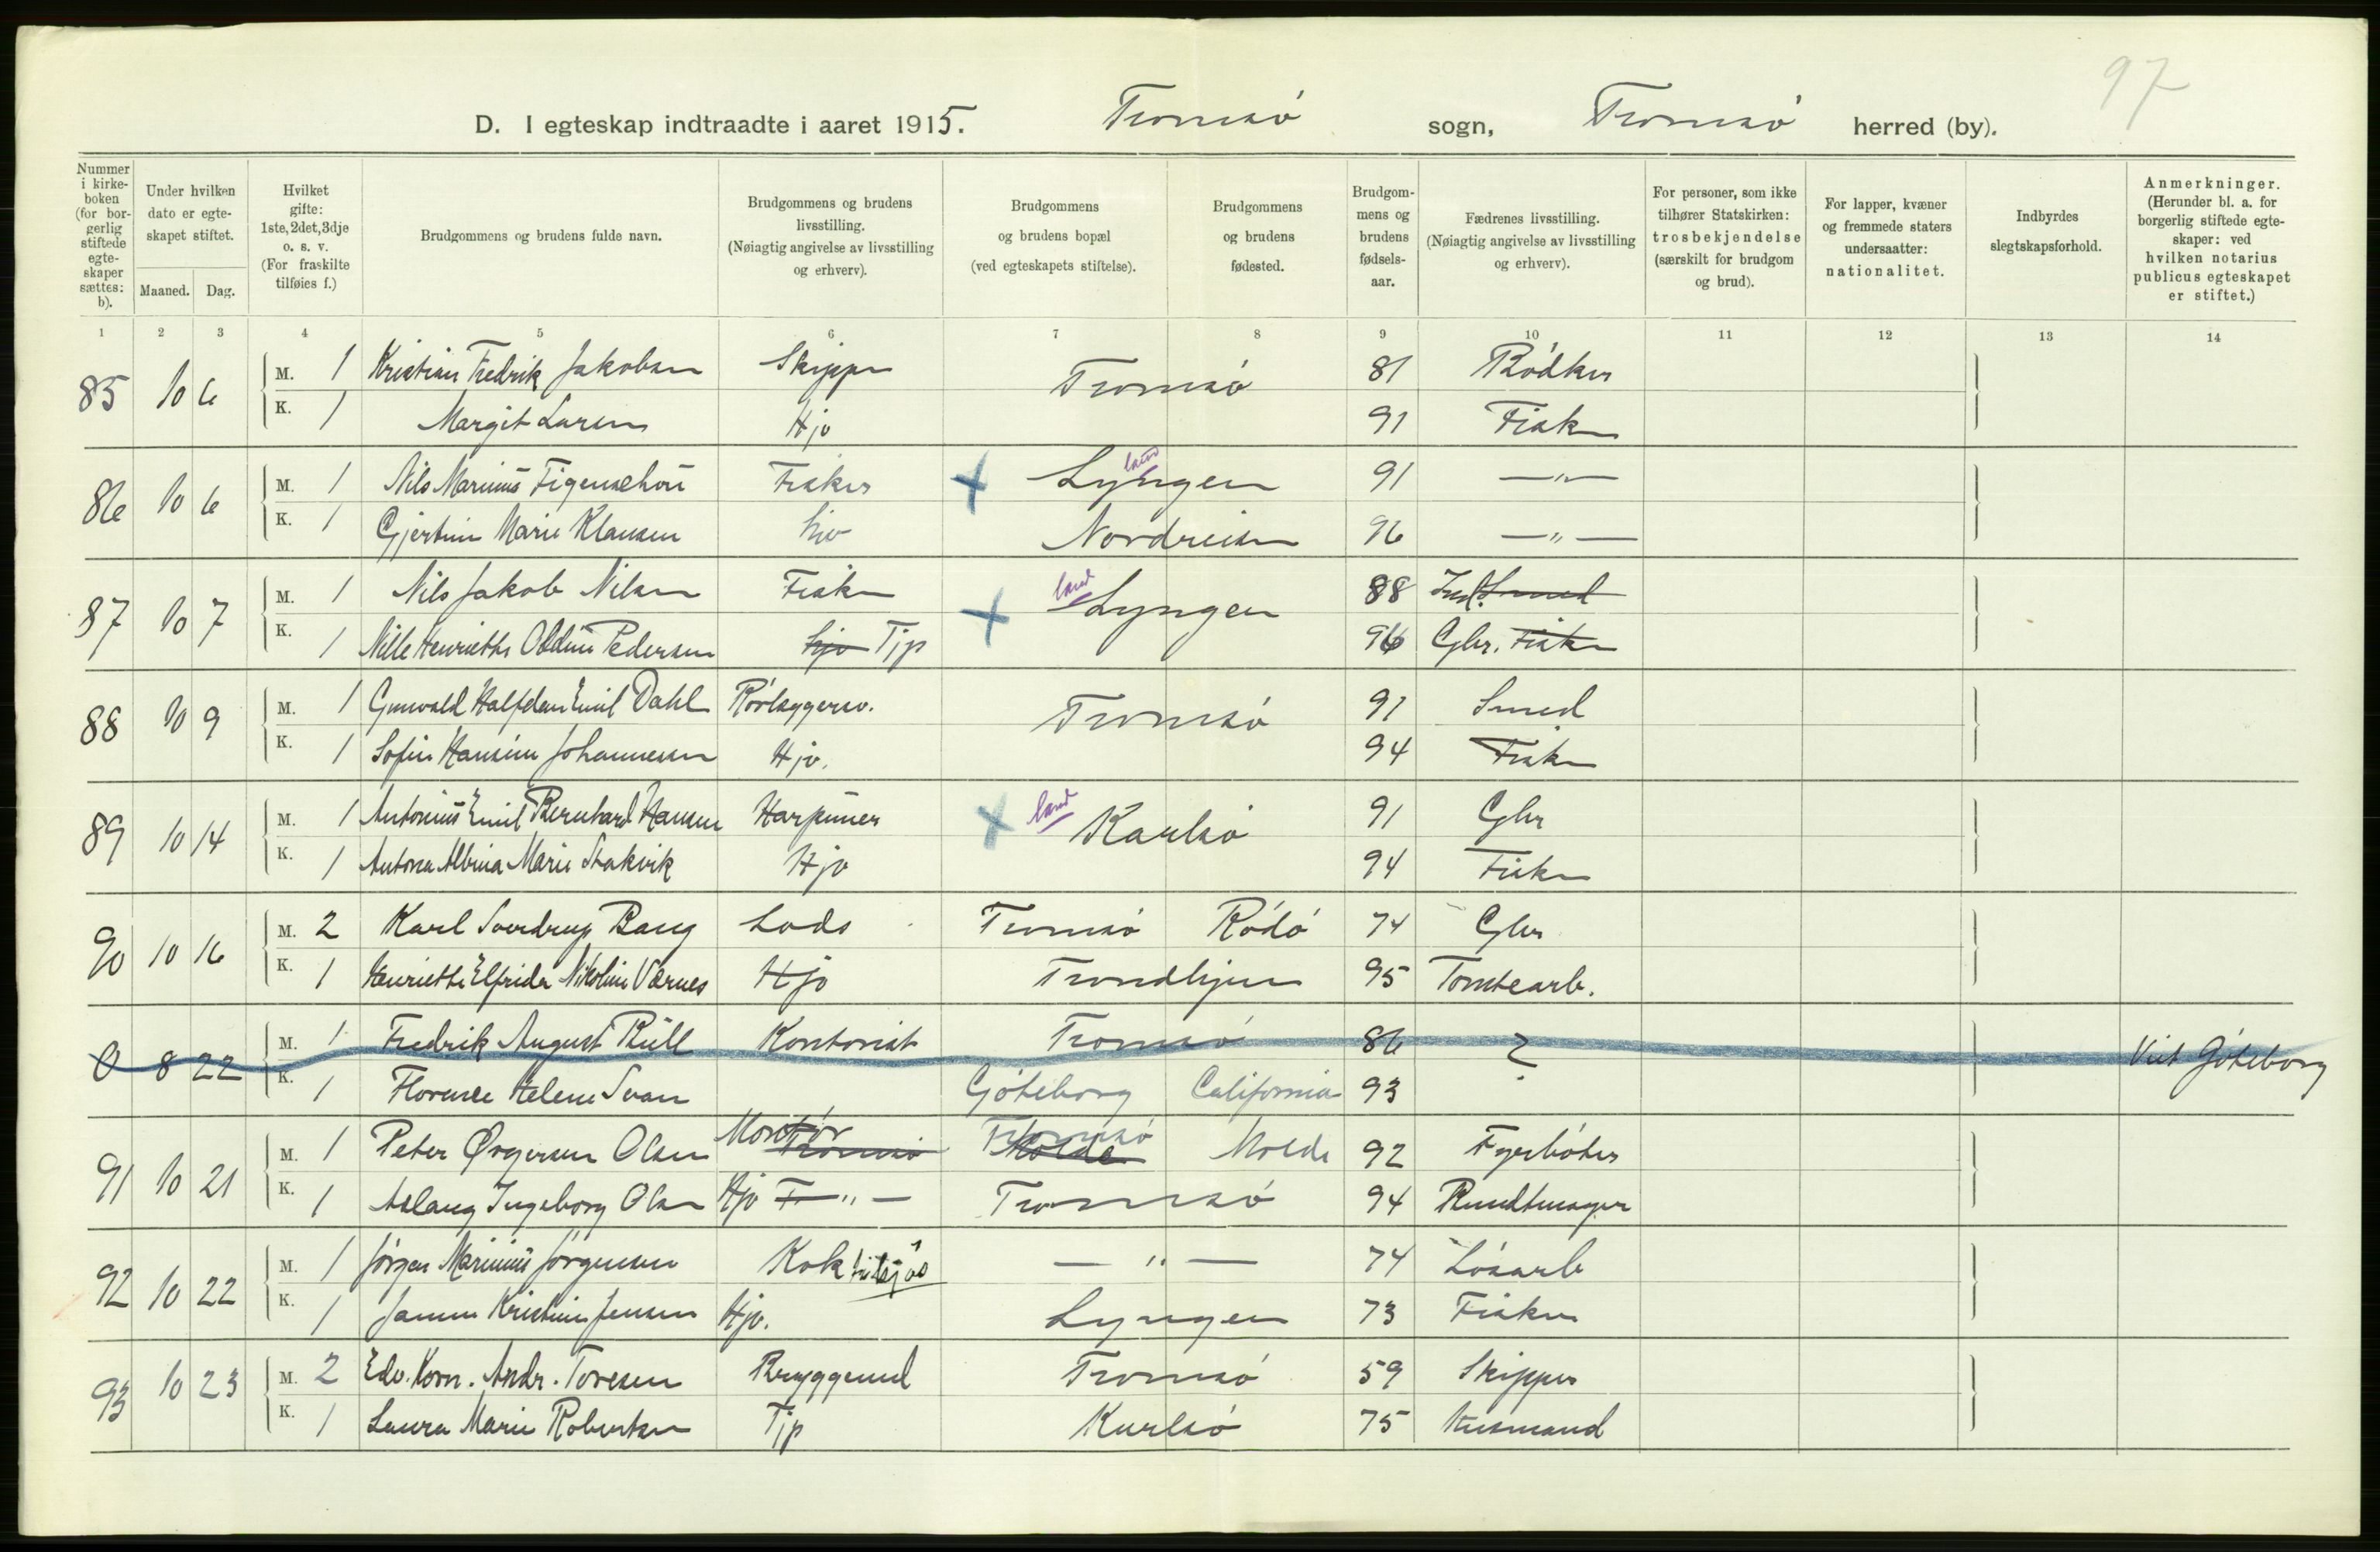 97
D. I egteskap indtraadte i aaret 1915. Tromsö sogn, Tromsö herred (by).
Nummer i kirke-boken (for bor-gerlig stiftede egte-skaper sættes: b).
Under hvilken dato er egte-skapet stiftet.
Maaned. Dag.
Hvilket gifte: 1ste, 2det, 3dje o. s. v. (For fraskilte tilføies f.)
Brudgommens og brudens fulde navn.
Brudgommens og brudens livsstilling. (Nøiagtig angivelse av livsstilling og erhverv).
Brudgommens og brudens bopæl (ved egteskapets stiftelse).
Brudgommens og brudens fødested.
Brudgom-mens og brudens fødsels-aar.
Fædrenes livsstilling. (Nøiagtig angivelse av livsstilling og erhverv).
For personer, som ikke tilhører Statskirken: trosbekjendelse (særskilt for brudgom og brud).
For lapper, kvæner og fremmede staters undersaatter: nationalitet.
Indbyrdes slegtskapsforhold.
Anmerkninger. (Herunder bl. a. for borgerlig stiftede egte-skaper: ved hvilken notarius publicus egteskapet er stiftet.)
1 2 3 4 5 6 7 8 9 10 11 12 13 14
85 10 6 M. 1 Kristian Fredrik Jakobsen Skipper Tromsö 81 Rödker
K. 1 Margit Larsen Hjv 91 Fisker
86 10 6 M. 1 Nils Marinus Figenschou Fisker + Lyngen land 91 —"—
K. 1 Gjertine Marie Klausen hjv Nordreisen 96 —"—
87 10 7 M. 1 Nils Jakob Nilsen Fisker + land Lyngen 88 Ind. Smed
K. 1 Nille Henriette Oldine Pedersen hjv Tjp 96 Gbr. Fisker
88 10 9 M. 1 Gunvald Halfdan Emil Dahl Rörlæggersv. Tromsö 91 Smed
K. 1 Sofie Hansine Johannessen Hjv. 94 Fisker
89 10 14 M. 1 Antonius Emil Bernhard Hansen Harpuner + land Karlsö 91 Gbr
K. 1 Antona Albina Marie Stakvik Hjv 94 Fisker
90 10 16 M. 2 Karl Sverdrup Bang Lods Tromsö Rödö 74 Gbr
K. 1 Henriette Elfrida Nikoline Værnes Hjv Trondhjem 95 Tomtearb.
0 8 22 M. 1 Fredrik August Rüll Kontorist Tromsö 86 ? Viet Göteborg
K. 1 Florence Helene Svan Göteborg California 93
91 10 21 M. 1 Peter Ørgersen Olsen Montör Tromsö Tromsö Molde Molde 92 Fyrböter
K. 1 Aslaug Ingeborg Olsen Hjv —"— Tromsö 94 Bundtmager
92 10 22 M. 1 Jörgen Marinius Jörgensen Kok tilsjös —"— 74 Lösarb
K. 1 Kristine Jensen Hjv. Lyngen 73 Fisker
93 10 23 M. 2 Edv. Korn. Andr. Toresen Bryggemd Tromsö 59 Skipper
K. 1 Laura Marie Robertsen Tjp Karlsö 75 Husmand